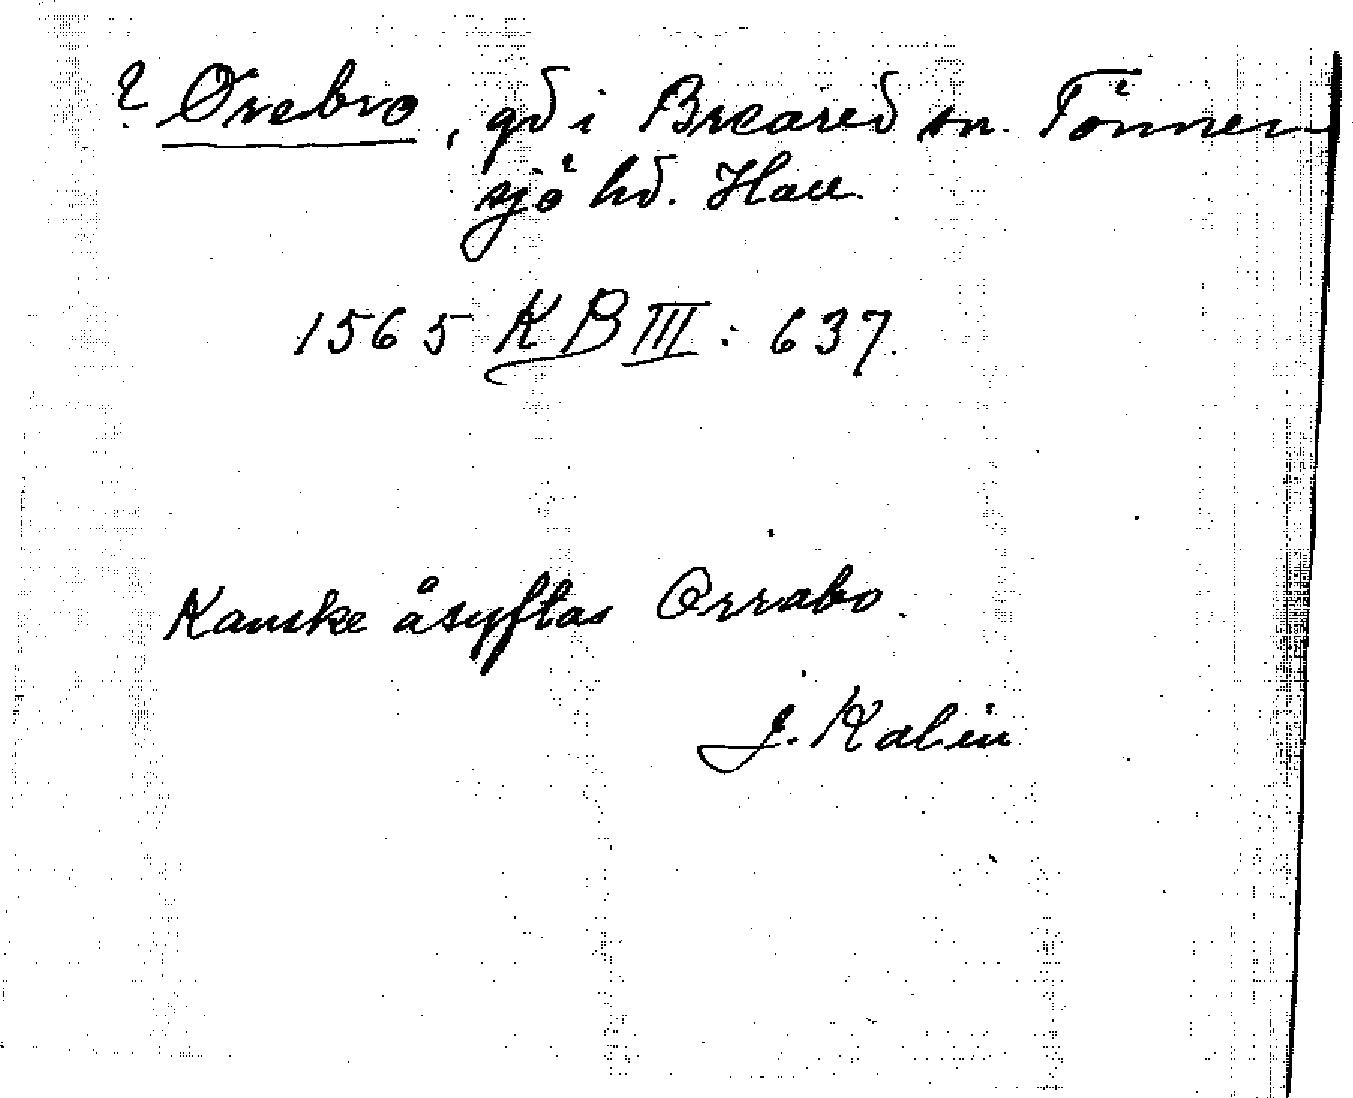 ? Ørebro, gd i Breared sn. Tönner-
sjö hd. Hall.
1565 KB III: 637.
Kanske åsyftas Orrabo.
J. Kalén